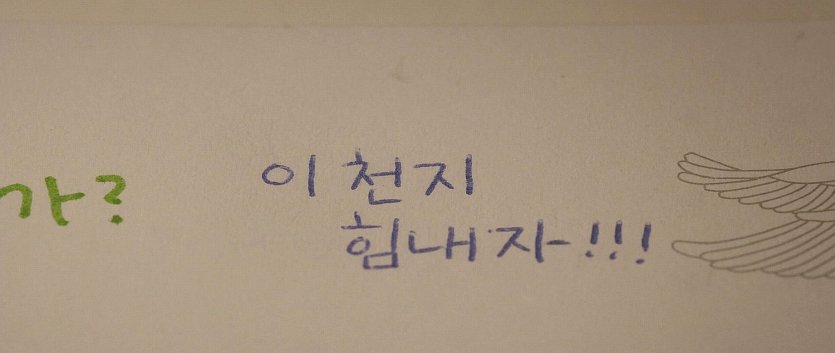 가?
이천지
힘내자!!!